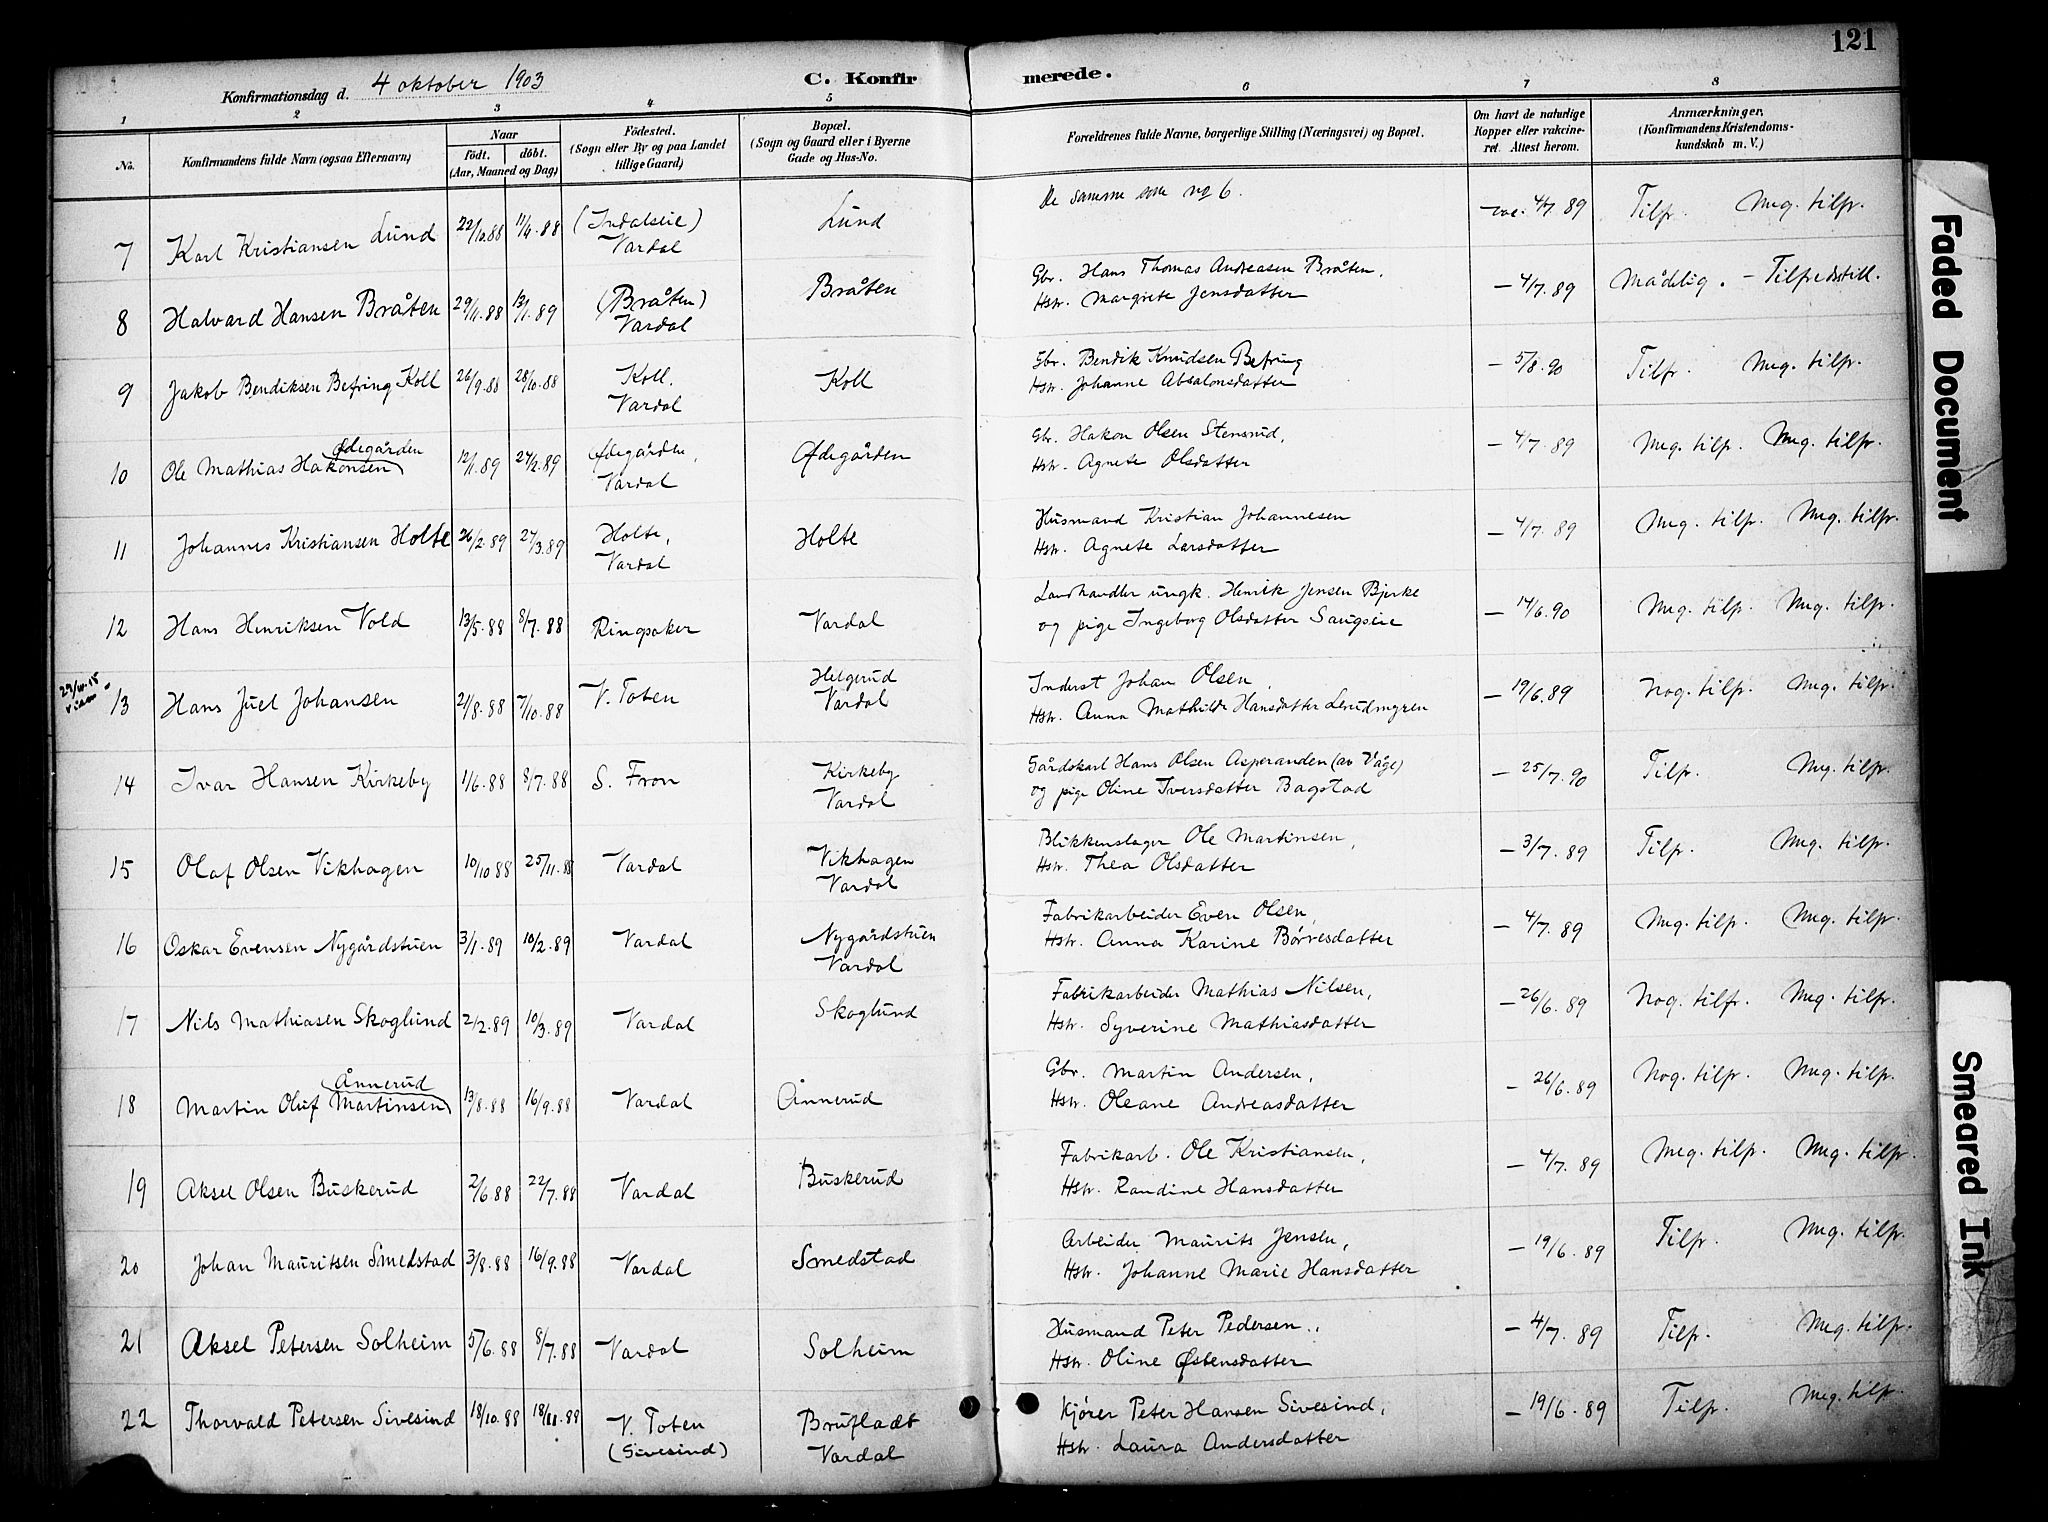 121
Konfirmationsdag d. 4 oktober 1903 C. Konfirmerede.
1 2 3 4 5 6 7 8
No. Konfirmandens fulde Navn (ogsaa Efternavn) Naar født. døbt. (Aar, Maaned og Dag) Fødested. (Sogn eller By og paa Landet tillige Gaard) Bopæl. (Sogn og Gaard eller i Byerne Gade og Hus-No. Forældrenes fulde Navne, borgerlige Stilling (Næringsvei) og Bopæl. Om havt de naturlige Kopper eller vakcineret. Attest herom. Anmærkninger. (Konfirmandens Kristendomskundskab m. V.)
7 Karl Kristiansen Lund 22/10.88 11/4.88 (Indalseie) Vardal Lund De samme som no 6. vac. 4/7.89 Tilfr. Meg. tilfr.
8 Halvard Hansen Bråten 29/11.88 13/1.89 (Bråten) Vardal Bråten Gbr. Hans Thomas Andreasen Bråten,
Hstr. Margrete Jensdatter – 4/7.89 Mådelig. – Tilfredsstill.
9 Jakob Bendiksen Befring Koll 26/9.88 28/10.88 Koll, Vardal Koll Gbr. Bendik Knudsen Befring
Hstr. Johanne Absalonsdatter – 5/8.90 Tilfr. Meg. tilfr.
10 Ole Mathias Hakonsen Ødegården 12/1.89 24/2.89 Ødegården, Vardal Ødegården Gbr. Hakon Olsen Stensrud,
Hstr. Agnete Olsdatter – 4/7.89 Meg. tilfr. Meg. tilfr.
11 Johannes Kristiansen Holte 26/2.89 27/3.89 Holte, Vardal Holte Husmand Kristian Johannesen
Hstr. Agnete Larsdatter – 4/7.89 Meg. tilfr. Meg. tilfr.
12 Hans Henriksen Vold 13/5.88 8/7.88 Ringsaker Vardal Landhandler ungk. Henrik Jensen Bjerke
og pige Ingeborg Olsdatter Saugseie – 14/6.90 Meg. tilfr. Meg. tilfr.
29/10.15
13 Hans Juel Johansen 21/8.88 7/10.88 V. Toten Helgerud Vardal Inderst Johan Olsen,
Hstr. Anna Mathilde Hansdatter Lerudmyren – 19/6.89 Nog. tilfr. Meg. tilfr.
14 Ivar Hansen Kirkeby 1/6.88 8/7.88 S. Fron Kirkeby Vardal Gårdskarl Hans Olsen Asperanden (av Våge)
og pige Oline Iversdatter Bagstad – 25/7.90 Tilfr. Meg. tilfr.
15 Olaf Olsen Vikhagen 10/10 88 25/11.88 Vardal Vikhagen Vardal Blikkenslager Ole Martinsen,
Hstr. Thea Olsdatter – 3/7.89 Tilfr. Meg. tilfr.
16 Oskar Evensen Nygårdstuen 3/1.89 10/2.89 Vardal Nygårdstuen Vardal Fabrikarbeider Even Olsen,
Hstr. Anna Karine Børresdatter – 4/7.89 Meg. tilfr. Meg. tilfr.
17 Nils Mathiasen Skoglund 2/2.89 10/3.89 Vardal Skoglund Fabrikarbeider Mathias Nilsen,
Hstr. Syverine Mathiasdatter – 26/6.89 Nog. tilfr. Meg. tilfr.
18 Martin Oluf Martinsen Ånnerud 13/8.88 16/9.88 Vardal Ånnerud Gbr. Martin Andersen,
Hstr. Oleane Andreasdatter – 26/6.89 Nog. tilfr. Meg. tilfr.
19 Aksel Olsen Buskerud 2/6.88 22/7.88 Vardal Buskerud Fabrikarb. Ole Kristiansen,
Hstr. Randine Hansdatter – 4/7.89 Meg. tilfr. Meg. tilfr.
20 Johan Mauritsen Smedstad 3/8.88 16/9.88 Vardal Smedstad Arbeider Maurits Jensen,
Hstr. Johanne Marie Hansdatter – 19/6.89 Tilfr. Meg. tilfr.
21 Aksel Petersen Solheim 5/6.88 8/7.88 Vardal Solheim Husmand Peter Pedersen,
Hstr. Oline Østensdatter – 4/7.89 Tilfr. Meg. tilfr.
22 Thorvald Petersen Sivesind 18/10.88 18/11.88 V. Toten (Sivesind) Brufladt Vardal Kjører Peter Hansen Sivesind,
Hstr. Laura Andersdatter – 19/6.89 Tilfr. Meg. tilfr.
Faded Document
Smeared Ink